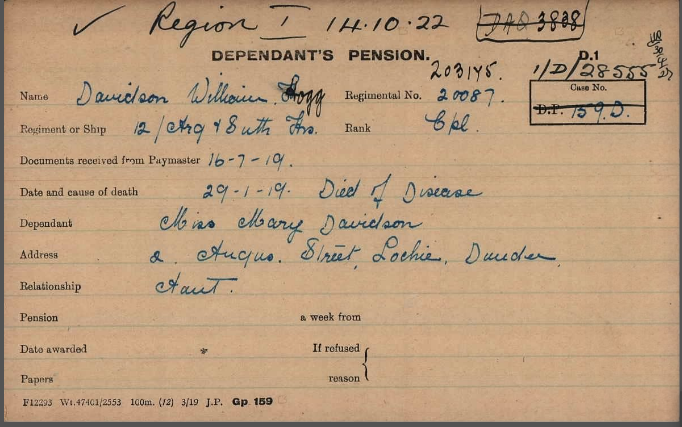 ✓ Region I 14.10.22 DAQ 3838
DEPENDANT'S PENSION. D.1
203145. 1/D/28555
Name Davidson William Hogg Regimental No. 20087. Case No.
D.P. 159.D.
Regiment or Ship 12/Arg & Suth Hrs. Rank Cpl.
Documents received from Paymaster 16-7-19.
Date and cause of death 29-1-19. Died of Disease
Dependant Miss Mary Davidson
Address 2. Angus. Street, Lochie, Dundee.
Relationship Aunt.
Pension a week from
Date awarded * If refused
Papers reason
F12293 Wt.47401/2553 100m. (12) 3/19 J.P. Gp 159